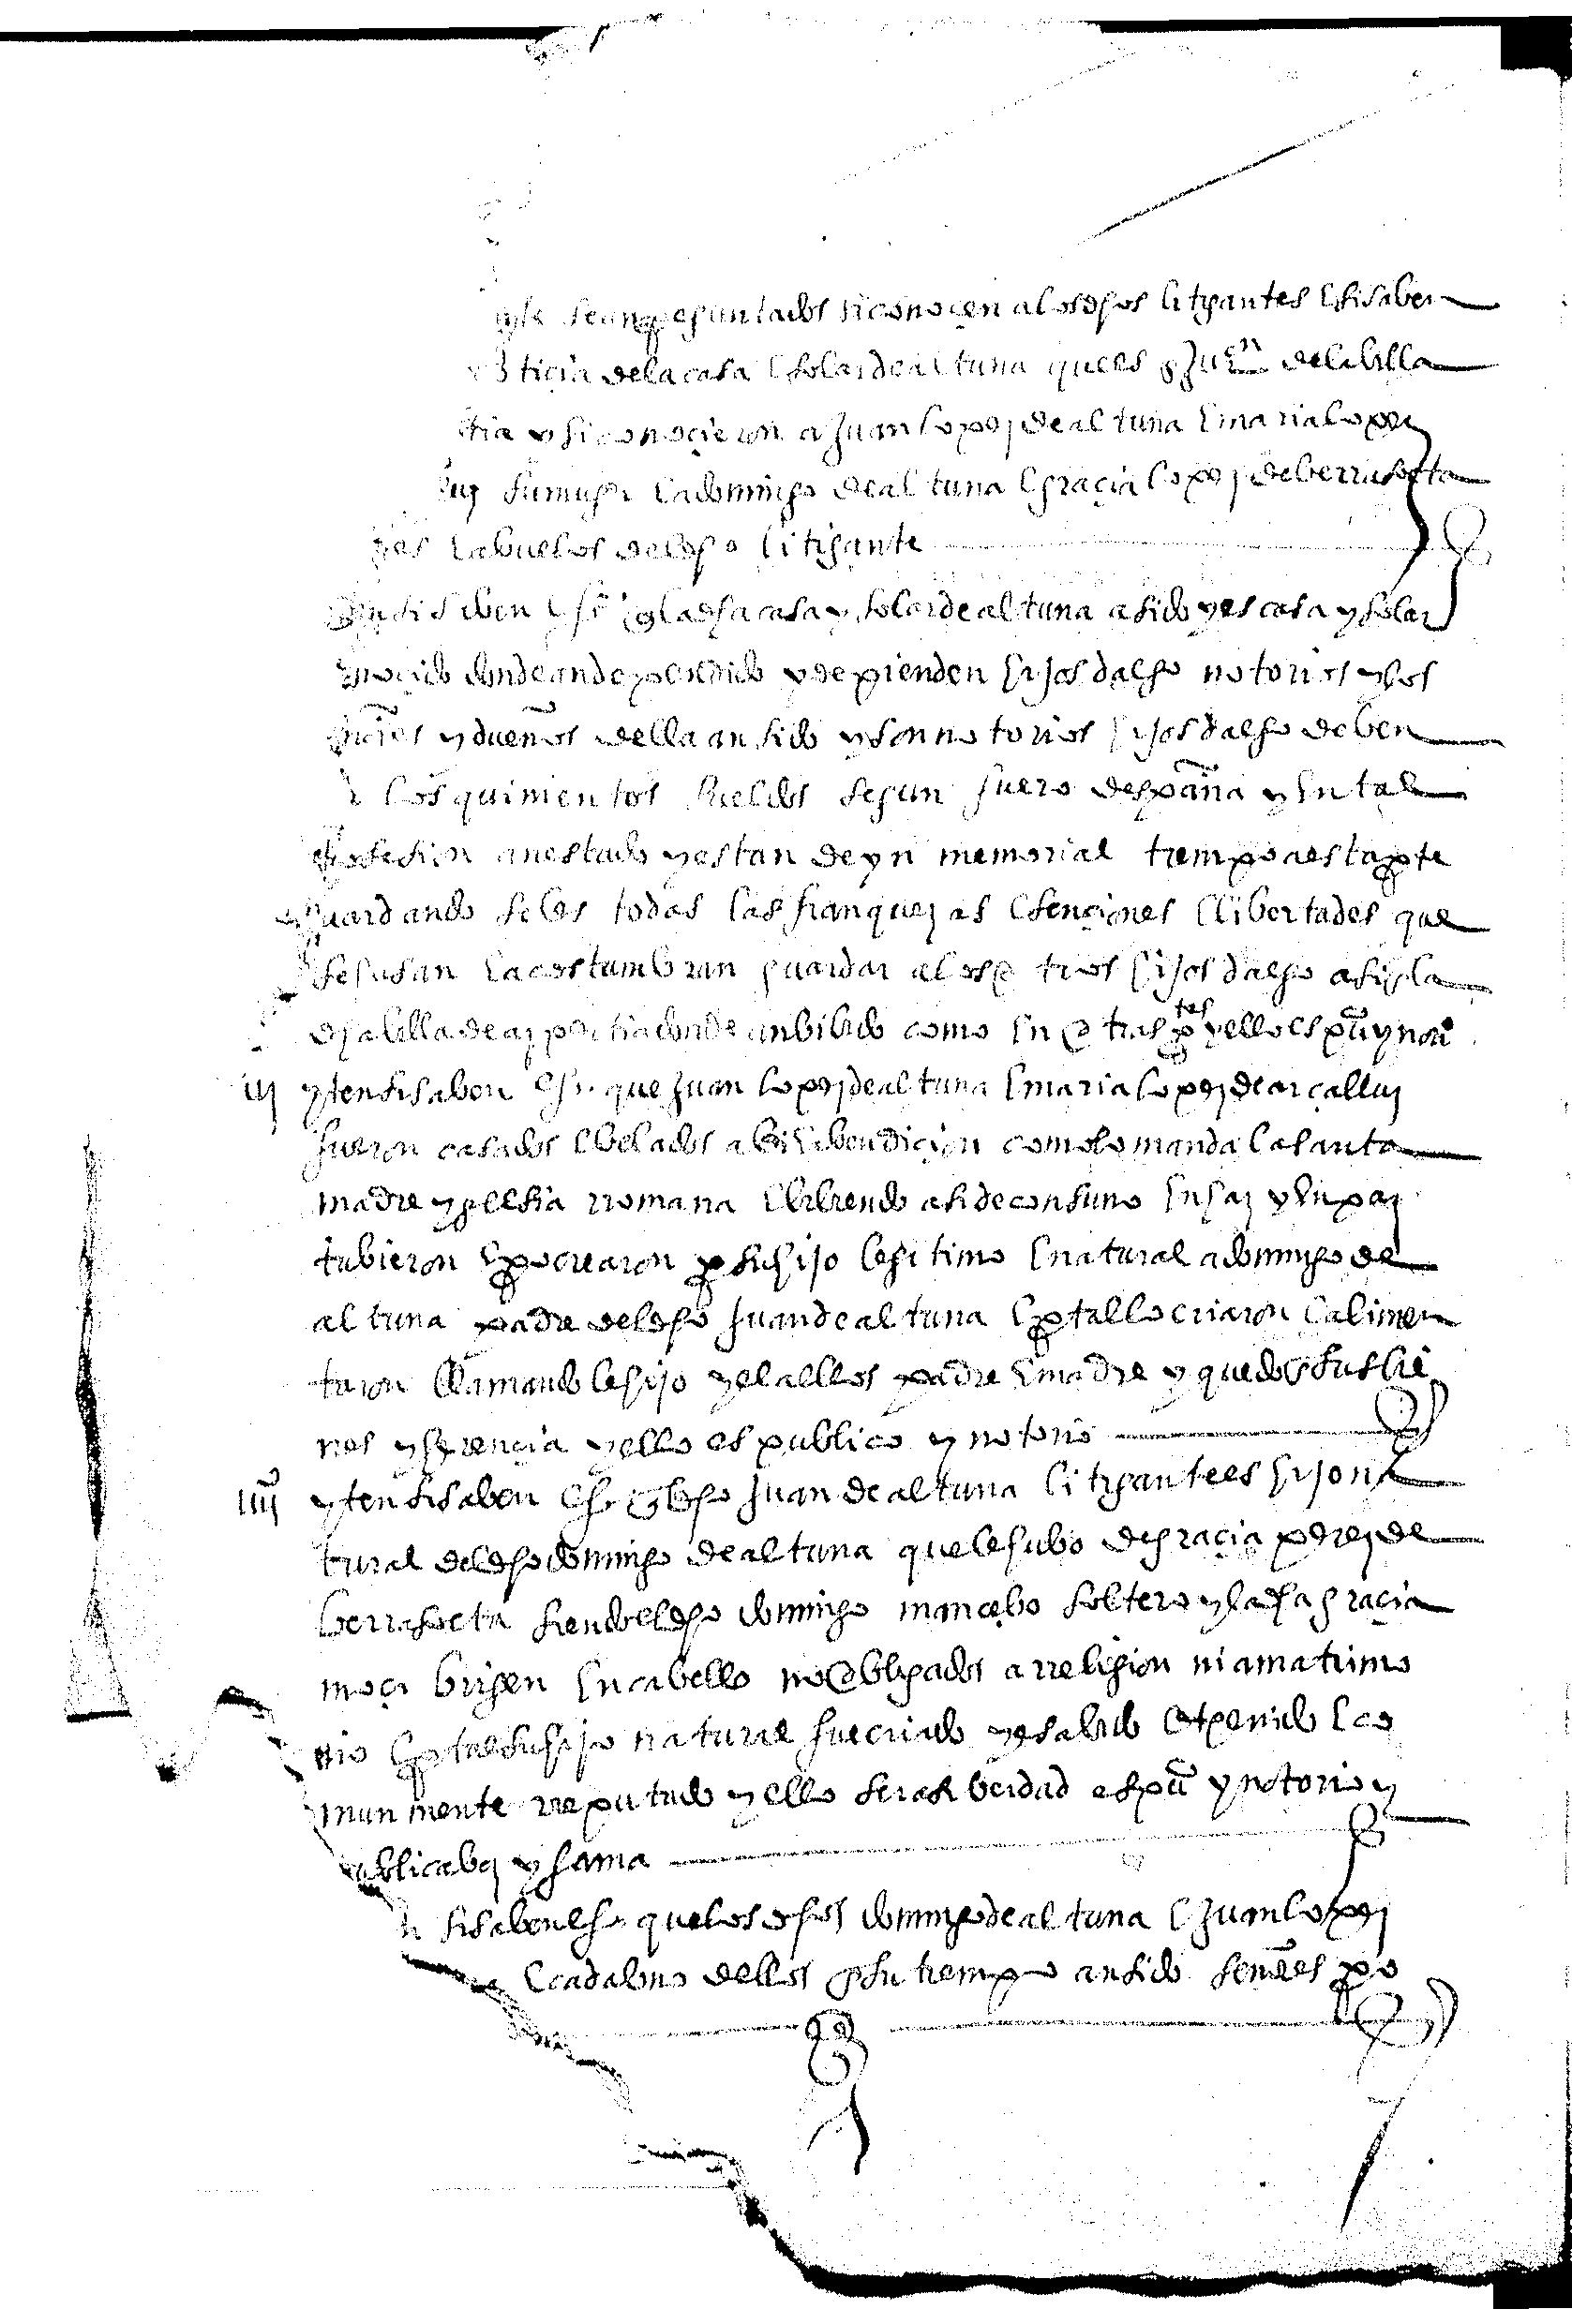 sean preguntados si conoçen a los dhos litigantes e si saben
noticia de la casa e solar de altuna que es en Jurn de la billa
tia y si conoçieron a Juan lopez de altuna e maria lopez
luz su muger e a domingo de altuna e graçia lopez de berrasoeta
res e abuelos del dho litigante
si saben e ... q la dha casa y solar de altuna a sido y es casa y solar
noçido donde an dependido y depienden hijos dalgo notorios y los
y dueños della an sido y son notorios hijos dalgo de ben
r los quinientos sueldos segun fuero despaña y en tal
posesion an estado y estan de yn memorial tiempo a esta pte
guardandoseles todas las franquezas esençiones e libertades que
se usan e acostumbran guardar a los otros hijos dalgo asi en la
dha billa de azpeitia donde an bibido como en otras ptes y ello es pu y noto
iij yten si saben eh. que Juan lopez de altuna e maria lopez de arçalluz
fueron casados e belados a ley e bendiçion como lo manda la santa
madre yglesia rromana e bibiendo asi de consuno en haz y en paz
tubieron e procrearon por su hijo legitimo e natural a domingo de
altuna padre del dho Juan de altuna e por tal lo criaron e alimen
taron llamandole hijo y el a ellos padre e madre y quedo en sus bie
nes y herençia y ello es publico y notorio
iiij yten si saben eh. q el dho Juan de altuna litigante es hijo na
tural del dho domingo de altuna que le hubo de graçia perez de
berrasoeta siendo el dho domingo mançebo soltero y la dha graçia
moça birgen en cabello no obligados a rreligion ni a matrimo
nio e por tal su hijo natural fue criado y es abido e tenido e co
munmente rreputado y ello ser asi berdad es pu y notorio y
ublica boz y fama
n si saben eh. que los dhos domingo de altuna e Juan lopez
e cada uno dellos en su tiempo an sido señores po